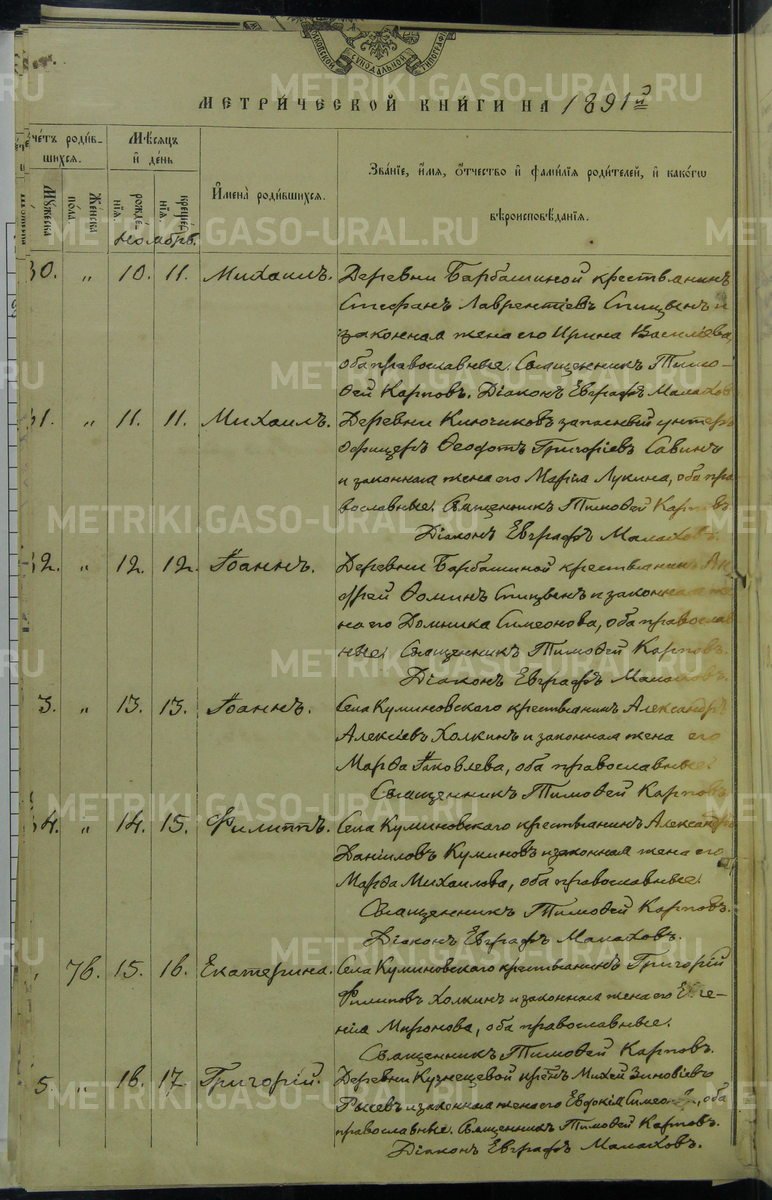 МОСКОВСКОЙ СУНОДАЛЬНОЙ ТИПОГРАФІИ
МЕТРИ́ЧЕСКОЙ КНИ́ГИ НА 1891й
Сче́тъ роди́в-
шихся.
Мѣ́сяцъ
и҆ де́нь
И҆мена̀ роди́вшихся.
Зва́нїе, и҆́мя, ѻ҆́тчество и҆ фами́лїя роди́телей, и҆ како́гѡ
вѣроисповѣ́данїя.
Му́жеска
Же́нска
по́ла
рожде́-
нїя.
креще́-
нїя.
Ноябрь.
30. „ 10. 11. Михаилъ. Деревни Барбашиной крестьянинъ
Стефанъ Лаврентіевъ Спицынъ и
законная жена его Ирина Василіева,
оба православные. Священникъ Тимо-
ѳей Карповъ. Діаконъ Евграфъ Малаховъ
31. „ 11. 11. Михаилъ. Деревни Ключиковъ запасный унтеръ
офицеръ Ѳеодотъ Григоріевъ Савинъ
и законная жена его Марія Лукина, оба пра
вославные. Священникъ Тимоѳей Карповъ
Діаконъ Евграфъ Малаховъ.
32. „ 12. 12. Іоаннъ. Деревни Барбашиной крестьянинъ Ан
дрей Ѳоминъ Спицынъ и законная же
на его Домника Симеонова, оба православ
ные. Священникъ Тимоѳей Карповъ.
Діаконъ Евграфъ Малаховъ.
3. „ 13. 13. Іоаннъ. Села Куминовскаго крестьянинъ Александръ
Алексіевъ Холкинъ и законная жена его
Марѳа Іаковлева, оба православные.
Священникъ Тимоѳей Карповъ
34. „ 14. 15. Филиппъ. Села Куминовскаго крестьянинъ Александръ
Даніиловъ Куминовъ и законная жена его
Марѳа Михаилова, оба православные.
Священникъ Тимоѳей Карповъ.
Діаконъ Евграфъ Малаховъ.
„ 76. 15. 16. Екатерина. Села Куминовскаго крестьянинъ Григорій
Филиповъ Холкинъ и законная жена его Евге-
нія Миронова, оба православные.
Священникъ Тимоѳей Карповъ.
5. „ 16. 17. Григорій. Деревни Кузнецовой Михей Зиновіевъ
и законная жена его Евдокія Симеонова, оба
православные. Священникъ Тимоѳей Карповъ.
Діаконъ Евграфъ Малаховъ.
METRIKI.GASO-URAL.RU